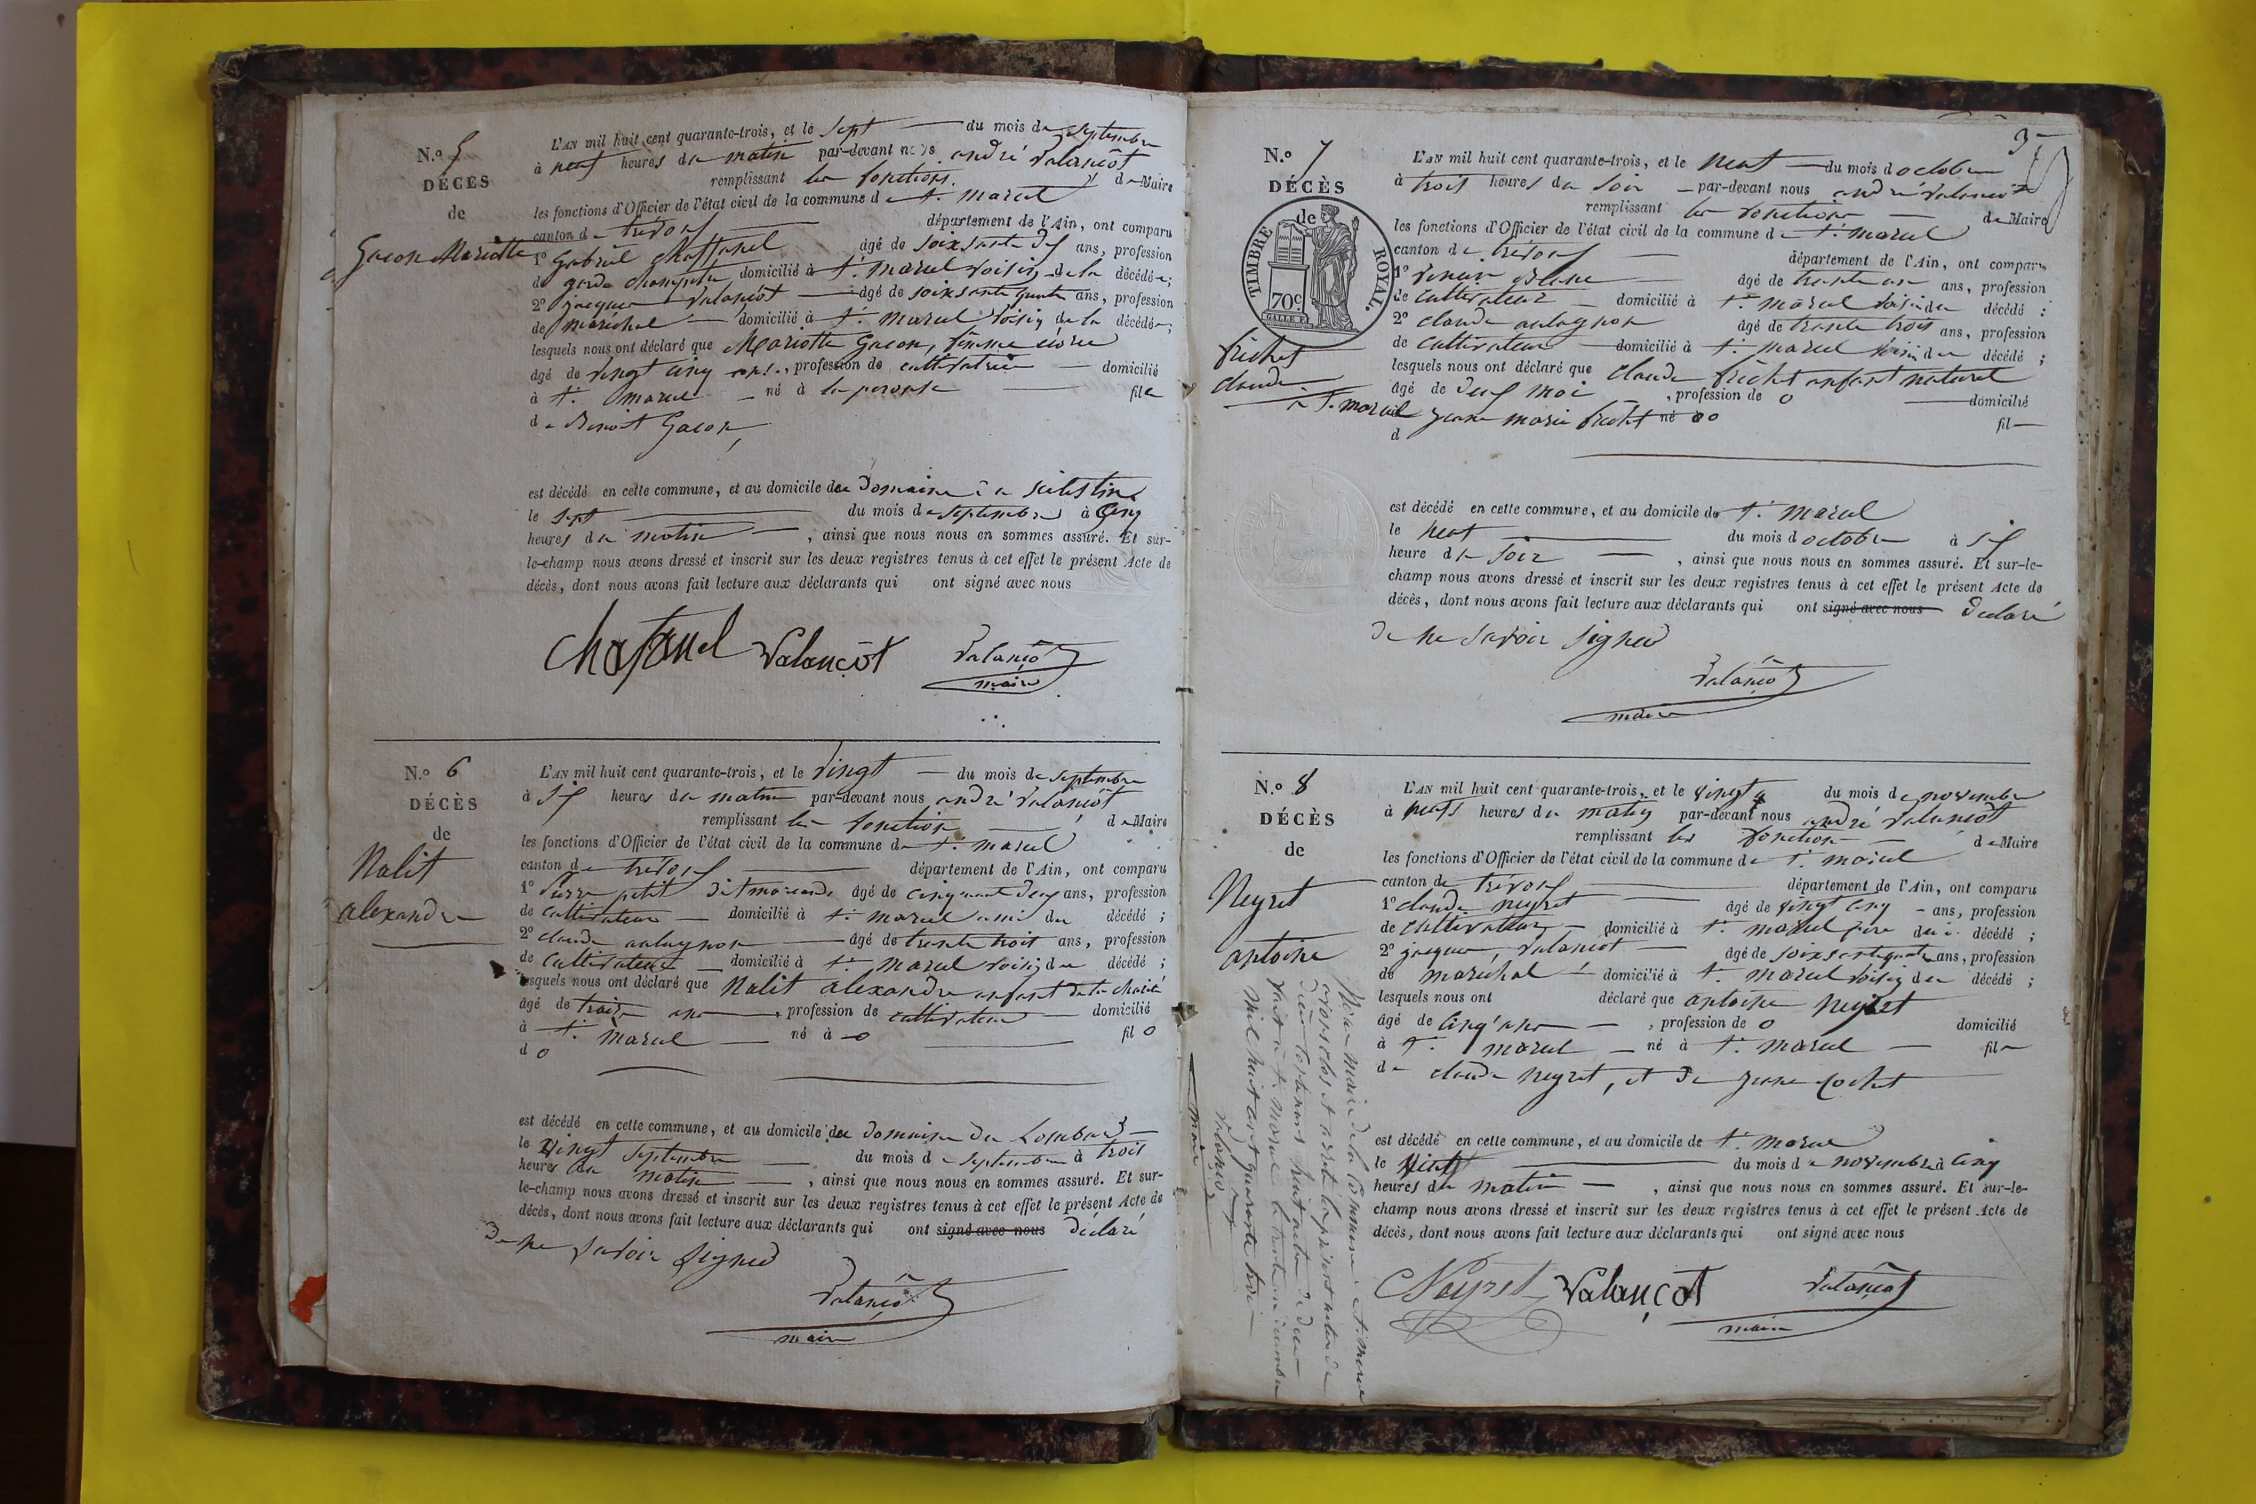 N.o 5
DÉCÈS
de
Gacon Mariotte
L'AN mil huit cent quarante-trois, et le sept du mois de septembre
à neuf heures du matin par-devant nous andré Valançot
remplissant les fonctions de Maire
les fonctions d'Officier de l'état civil de la commune de st. marcel
canton de trévoux département de l'Ain, ont comparu
1o gabriel chaffanel âgé de soixsante dix ans, profession
de garde champetre domicilié à st. marcel voisin de la décédée;
2o jacques Valançot âgé de soixsante quatre ans, profession
de maréchal domicilié à st. marcel voisin de la décédée;
lesquels nous ont déclaré que Mariotte Gacon, femme
âgé de vingt cinq ans, profession de cultivatrice domicilié
à st. marcel né à la perouse fille
de Benoit Gacon,
est décédé en cette commune, et au domicile du Domaine
le sept du mois de septembre à cinq
heures du matin, ainsi que nous nous en sommes assuré. Et sur-
le-champ nous avons dressé et inscrit sur les deux registres tenus à cet effet le présent Acte de
décès, dont nous avons fait lecture aux déclarants qui ont signé avec nous
Chafanel Valançot Valançot
maire
N.o 6
DÉCÈS
de
Nalit
alexandre
L'AN mil huit cent quarante-trois, et le vingt du mois de septembre
à six heures du matin par-devant nous andré Valançot
remplissant les fonction de Maire
les fonctions d'Officier de l'état civil de la commune de st. marcel
canton de trévoux département de l'Ain, ont comparu
1o pierre petit dit âgé de cinquante deux ans, profession
de cultivateur domicilié à st. marcel ami du décédé;
2o claude aulagnon âgé de trante trois ans, profession
de cultivateur domicilié à st. marcel voisin du décédé;
lesquels nous ont déclaré que Nalit alexandre enfant de la charité
âgé de ans, profession de cultivateur domicilié
à st. marcel né à o fil o
d o
est décédé en cette commune, et au domicile du domaine du Lombard
le vingt septembre du mois de septembre à trois
heures du matin, ainsi que nous nous en sommes assuré. Et sur-
le-champ nous avons dressé et inscrit sur les deux registres tenus à cet effet le présent Acte de
décès, dont nous avons fait lecture aux déclarants qui ont signé avec nous déclaré
de ne savoir signer
Valançot
maire
3
N.o 7
DÉCÈS
de
TIMBRE ROYAL.
70c
frichet
claude
L'AN mil huit cent quarante-trois, et le neuf du mois d octobre
à trois heures du soir par-devant nous andré Valançot
remplissant les fonctions de Maire
les fonctions d'Officier de l'état civil de la commune de st. marcel
canton de trévoux département de l'Ain, ont comparu
1o âgé de trante ans, profession
de cultivateur domicilié à st. marcel voisin du décédé;
2o claude aulagnon âgé de trante trois ans, profession
de cultivateur domicilié à st. marcel voisin du décédé;
lesquels nous ont déclaré que claude frichet enfant naturel
âgé de deux moi, profession de o domicilié
à st. marcel jeane marie frichet né à o fil
d
est décédé en cette commune, et au domicile de st. marcel
le neuf du mois d octobre à six
heure du soir, ainsi que nous nous en sommes assuré. Et sur-le-
champ nous avons dressé et inscrit sur les deux registres tenus à cet effet le présent Acte de
décès, dont nous avons fait lecture aux déclarants qui ont signé avec nous déclaré
de ne savoir signer
Valançot
maire
N.o 8
DÉCÈS
de
Neyret
antoine
L'AN mil huit cent quarante-trois, et le vingt du mois de novembre
à neuf heures du matin par-devant nous andré Valançot
remplissant les fonction de Maire
les fonctions d'Officier de l'état civil de la commune de st. marcel
canton de trévoux département de l'Ain, ont comparu
1o claude neyret âgé de vingt cinq ans, profession
de cultivateur domicilié à st. marcel père du décédé;
2o jacques Valançot âgé de soixsante quatre ans, profession
de marechal domicilié à st. marcel voisin du décédé;
lesquels nous ont déclaré que antoine neyret
âgé de cinq ans, profession de o domicilié
à st. marcel né à st. marcel fil
de claude neyret, et de jeane cochet
est décédé en cette commune, et au domicile de st. marcel
le vint du mois de novembre à cinq
heures du matin, ainsi que nous nous en sommes assuré. Et sur-le-
champ nous avons dressé et inscrit sur les deux registres tenus à cet effet le présent Acte de
décès, dont nous avons fait lecture aux déclarants qui ont signé avec nous
Neyret Valançot Valançot
maire
Nous maire de la Commune de st. marcel
avons clos et arrêté le présent
contenant huit actes de deces
fait a st. marcel le trante un decembre
mil huit cent quarante trois
Valançot
maire